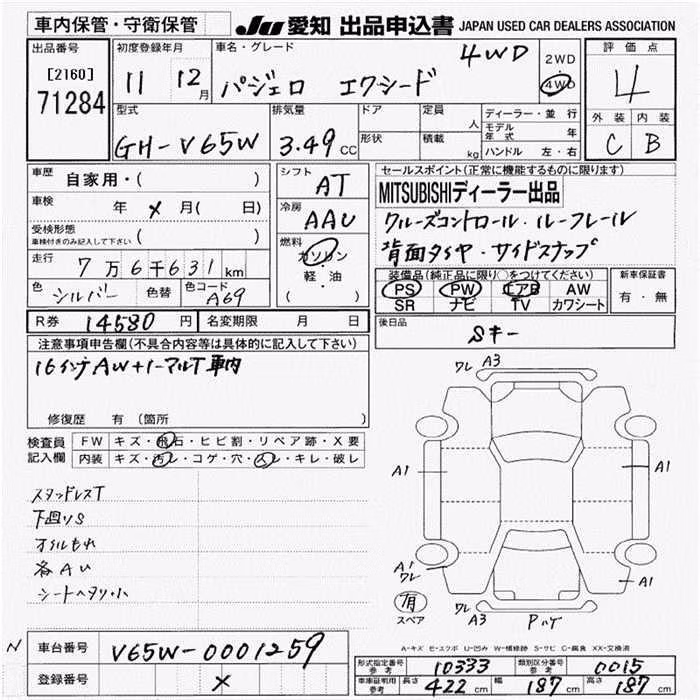 車内保管・守衛保管
JU 愛知 出品申込書 JAPAN USED CAR DEALERS ASSOCIATION
出品番号
[2160]
71284
初度登録年月
11 12月
車名・グレード
パジェロ エクシード 4WD
2WD
4WD
評価点
4
外装 内装
C B
型式
GH-V65W
排気量
3.49 CC
ドア
形状
定員 人
積載 kg
ディーラー・並行
モデル年式 年
ハンドル 左・右
車歴 自家用・( )
車検 年 メ 月( 日)
受検形態
車検付きのみ記入して下さい ( )
走行 7万6千631km
色 シルバー 色替 色コード A69
シフト AT
冷房 AAC
燃料
ガソリン
軽・油
( )
セールスポイント(正常に機能するものに限ります)
MITSUBISHIディーラー出品
クルーズコントロール・ルーフレール
背面タイヤ・サイドステップ
装備品(純正品に限り○をつけてください)
PS PW エアB AW
SR ナビ TV カワシート
新車保証書
有・無
R券 14580円 名変期限 月 日
後日品
Sキー
注意事項申告欄(不具合内容等は具体的に記入して下さい)
16インチAW+ノーマルT車内
修復歴 有(箇所 )
検査員記入欄
FW キズ・飛石・ヒビ割・リペア跡・X要
内装 キズ・汚レ・コゲ・穴・スレ・キレ・破レ
スタッドレスT
下回りS
オイルもれ
各AU
シートヘタリ・小
ワレ A3
A1 A1
A1 ワレ
A1
有
スペア
ワレ A3 Pハゲ
A-キズ E-エクボ U-凹み W-補修跡 S-サビ C-腐食 XX-交換済
N 車台番号 V65W-0001259
登録番号 ×
形式指定番号 参考 10333 類別区分番号 参考 0015
車庫証明用 参考 長さ 422cm 幅 187cm 高さ 187cm